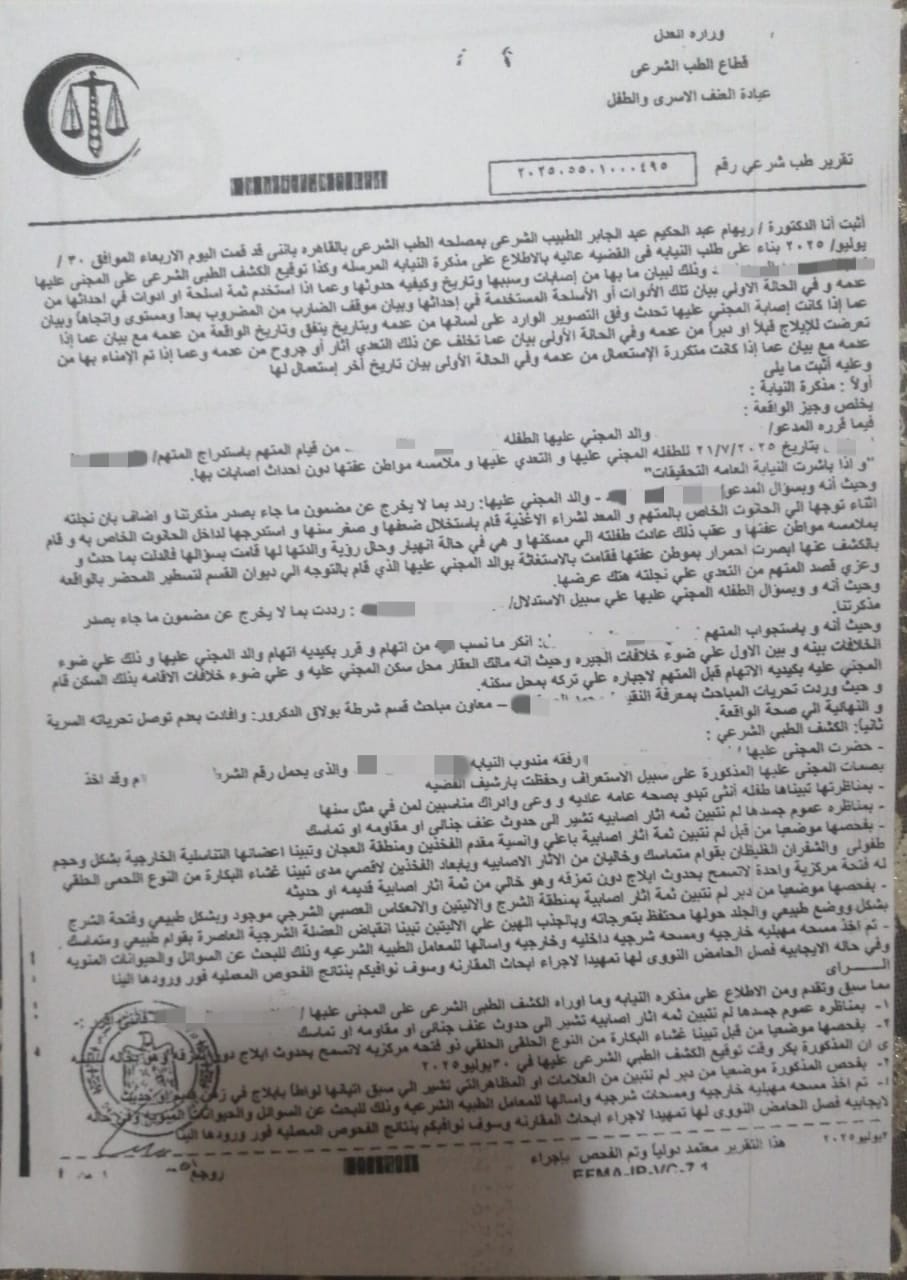 وزاره العدل
قطاع الطب الشرعى
عيادة العنف الاسرى والطفل
تقرير طب شرعي رقم ٢٠٢٥،٥٥،١٠٠٠٤٩٥
أثبت أنا الدكتورة / ريهام عبد الحكيم عبد الجابر الطبيب الشرعى بمصلحه الطب الشرعى بالقاهره باننى قد قمت اليوم الاربعاء الموافق ٣٠ /
يوليو/ ٢٠٢٥ بناء على طلب النيابه فى القضيه عاليه بالاطلاع على مذكرة النيابه المرسله وكذا توقيع الكشف الطبي الشرعى على المجني عليها
وذلك لبيان ما بها من إصابات وسببها وتاريخ وكيفيه حدوثها وعما اذا استخدم ثمة اسلحة او ادوات في احداثها من
عدمه و في الحالة الاولي بيان تلك الأدوات أو الأسلحة المستخدمة في إحداثها وبيان موقف الضارب من المضروب بعداً ومستوى واتجاهاً وبيان
عما إذا كانت إصابة المجني عليها تحدث وفق التصوير الوارد على لسانها من عدمه وبتاريخ يتفق وتاريخ الواقعة من عدمه مع بيان عما إذا
تعرضت للإيلاج قبلاً او دبراً من عدمه وفي الحالة الأولى بيان عما تخلف عن ذلك التعدي آثار أو جروح من عدمه وعما إذا تم الإمناء بها من
عدمه مع بيان عما إذا كانت متكررة الإستعمال من عدمه وفي الحالة الأولى بيان تاريخ أخر إستعمال لها
وعليه أثبت ما يلى
أولاً : مذكرة النيابة :
يخلص وجيز الواقعة :
فيما قرره المدعو/ والد المجني عليها الطفله من قيام المتهم باستدراج المتهم/
بتاريخ ٢١/٧/٢٠٢٥ للطفله المجني عليها و التعدي عليها و ملامسه مواطن عفتها دون احداث اصابات بها.
"و اذا باشرت النيابة العامه التحقيقات"
وحيث أنه وبسؤال المدعو/ - والد المجني عليها: ردد بما لا يخرج عن مضمون ما جاء بصدر مذكرتنا و اضاف بان نجلته
اثناء توجها الي الحانوت الخاص بالمتهم و المعد لشراء الاغذية قام باستخلال ضعفها و صغر سنها و استدرجها لداخل الحانوت الخاص به و قام
بملامسه مواطن عفتها و عقب ذلك عادت طفلته الي مسكنها و هي في حالة انهيار وحال رؤية والدتها لها قامت بسؤالها فادلت بما حدث و
بالكشف عنها ابصرت احمرار بموطن عفتها فقامت بالاستغاثة بوالد المجني عليها الذي قام بالتوجه الي ديوان القسم لتسطير المحضر بالواقعه
وعزي قصد المتهم من التعدي علي نجلته هتك عرضها.
وحيث أنه و وبسؤال الطفله المجني عليها علي سبيل الاستدلال/ : رددت بما لا يخرج عن مضمون ما جاء بصدر
مذكرتنا.
وحيث أنه و باستجواب المتهم : انكر ما نسب من اتهام و قرر بكيديه اتهام والد المجني عليها و ذلك علي ضوء
الخلافات بينه و بين الاول علي ضوء خلافات الجيره وحيث انه مالك العقار محل سكن المجني عليه و علي ضوء خلافات الاقامه بذلك السكن قام
المجني عليه بكيديه الاتهام قبل المتهم لاجباره علي تركه بمحل سكنه.
و حيث وردت تحريات المباحث بمعرفة – معاون مباحث قسم شرطة بولاق الدكرور: وافادت بعدم توصل تحرياته السرية
و النهائية الي صحة الواقعة.
ثانياً: الكشف الطبي الشرعي :
- حضرت المجنى عليها رفقه مندوب النيابه والذى يحمل رقم وقد اخذ
بصمات المجنى عليها المذكورة على سبيل الاستعراف وحفظت بارشيف القضيه
- بمناظرتها تبيناها طفله أنثى تبدو بصحه عامه عاديه و وعى وادراك مناسبين لمن في مثل سنها
- بمناظره عموم جسدها لم نتبين ثمه اثار اصابيه تشير الى حدوث عنف جنائى او مقاومه او تماسك
- بفحصها موضعيا من قبل لم نتبين ثمة اثار اصابية باعلي وانسية مقدم الفخذين ومنطقة العجان وتبينا اعضائها التناسلية الخارجية بشكل وحجم
طفولى والشفران الغليظان بقوام متماسك وخاليان من الاثار الاصابيه وبابعاد الفخذين لاقصي مدى تبينا غشاء البكارة من النوع اللحمى الحلقي
له فتحة مركزية واحدة لاتسمح بحدوث ايلاج دون تمزقه وهو خالي من ثمة اثار اصابية قديمه او حديثه
- بفحصها موضعيا من دبر لم نتبين ثمة اثار اصابية بمنطقة الشرج والاليتين والانعكاس العصبي الشرجي موجود وبشكل طبيعي وفتحة الشرج
بشكل ووضع طبيعي والجلد حولها محتفظ بتعرجاته وبالجذب الهين علي الاليتين تبينا انقباض العضلة الشرجية العاصرة بقوام طبيعي ومتماسك
- تم اخذ مسحه مهبليه خارجيه ومسحه شرجيه داخليه وخارجيه وارسالها للمعامل الطبيه الشرعيه وذلك للبحث عن السوائل والحيوانات المنويه
وفي حاله الايجابيه فصل الحامض النووى لها تمهيدا لاجراء ابحاث المقارنه وسوف نوافيكم بنتائج الفحوص المعمليه فور ورودها الينا
الـــــراى
مما سبق وتقدم ومن الاطلاع على مذكره النيابه وما اوراه الكشف الطبي الشرعى على المجنى عليها /
١- بمناظره عموم جسدها لم نتبين ثمه اثار اصابيه تشير الى حدوث عنف جنائى او مقاومه او تماسك
٢- بفحصها موضعيا من قبل تبينا غشاء البكارة من النوع الحلقى ذو فتحه مركزيه لاتسمح بحدوث ايلاج
ى ان المذكورة بكر وقت توقيع الكشف الطبي الشرعى عليها في ٣٠يوليو٢٠٢٥
بفحص المذكورة موضعيا من دبر لم نتبين من العلامات او المظاهرالتي تشير الي سبق اتيانها لواطا بإيلاج في زمن
تم اخذ مسحه مهبليه خارجيه ومسحات شرجيه وارسالها للمعامل الطبيه الشرعيه وذلك للبحث عن السوائل والحيوانات المنويه وفي حاله
لايجابيه فصل الحامض النووى لها تمهيدا لاجراء ابحاث المقارنه وسوف نوافيكم بنتائج الفحوص المعمليه فور ورودها الينا
يوليو٢٠٢٥ هذا التقرير معتمد دولياً وتم الفحص بإجراء
روجع